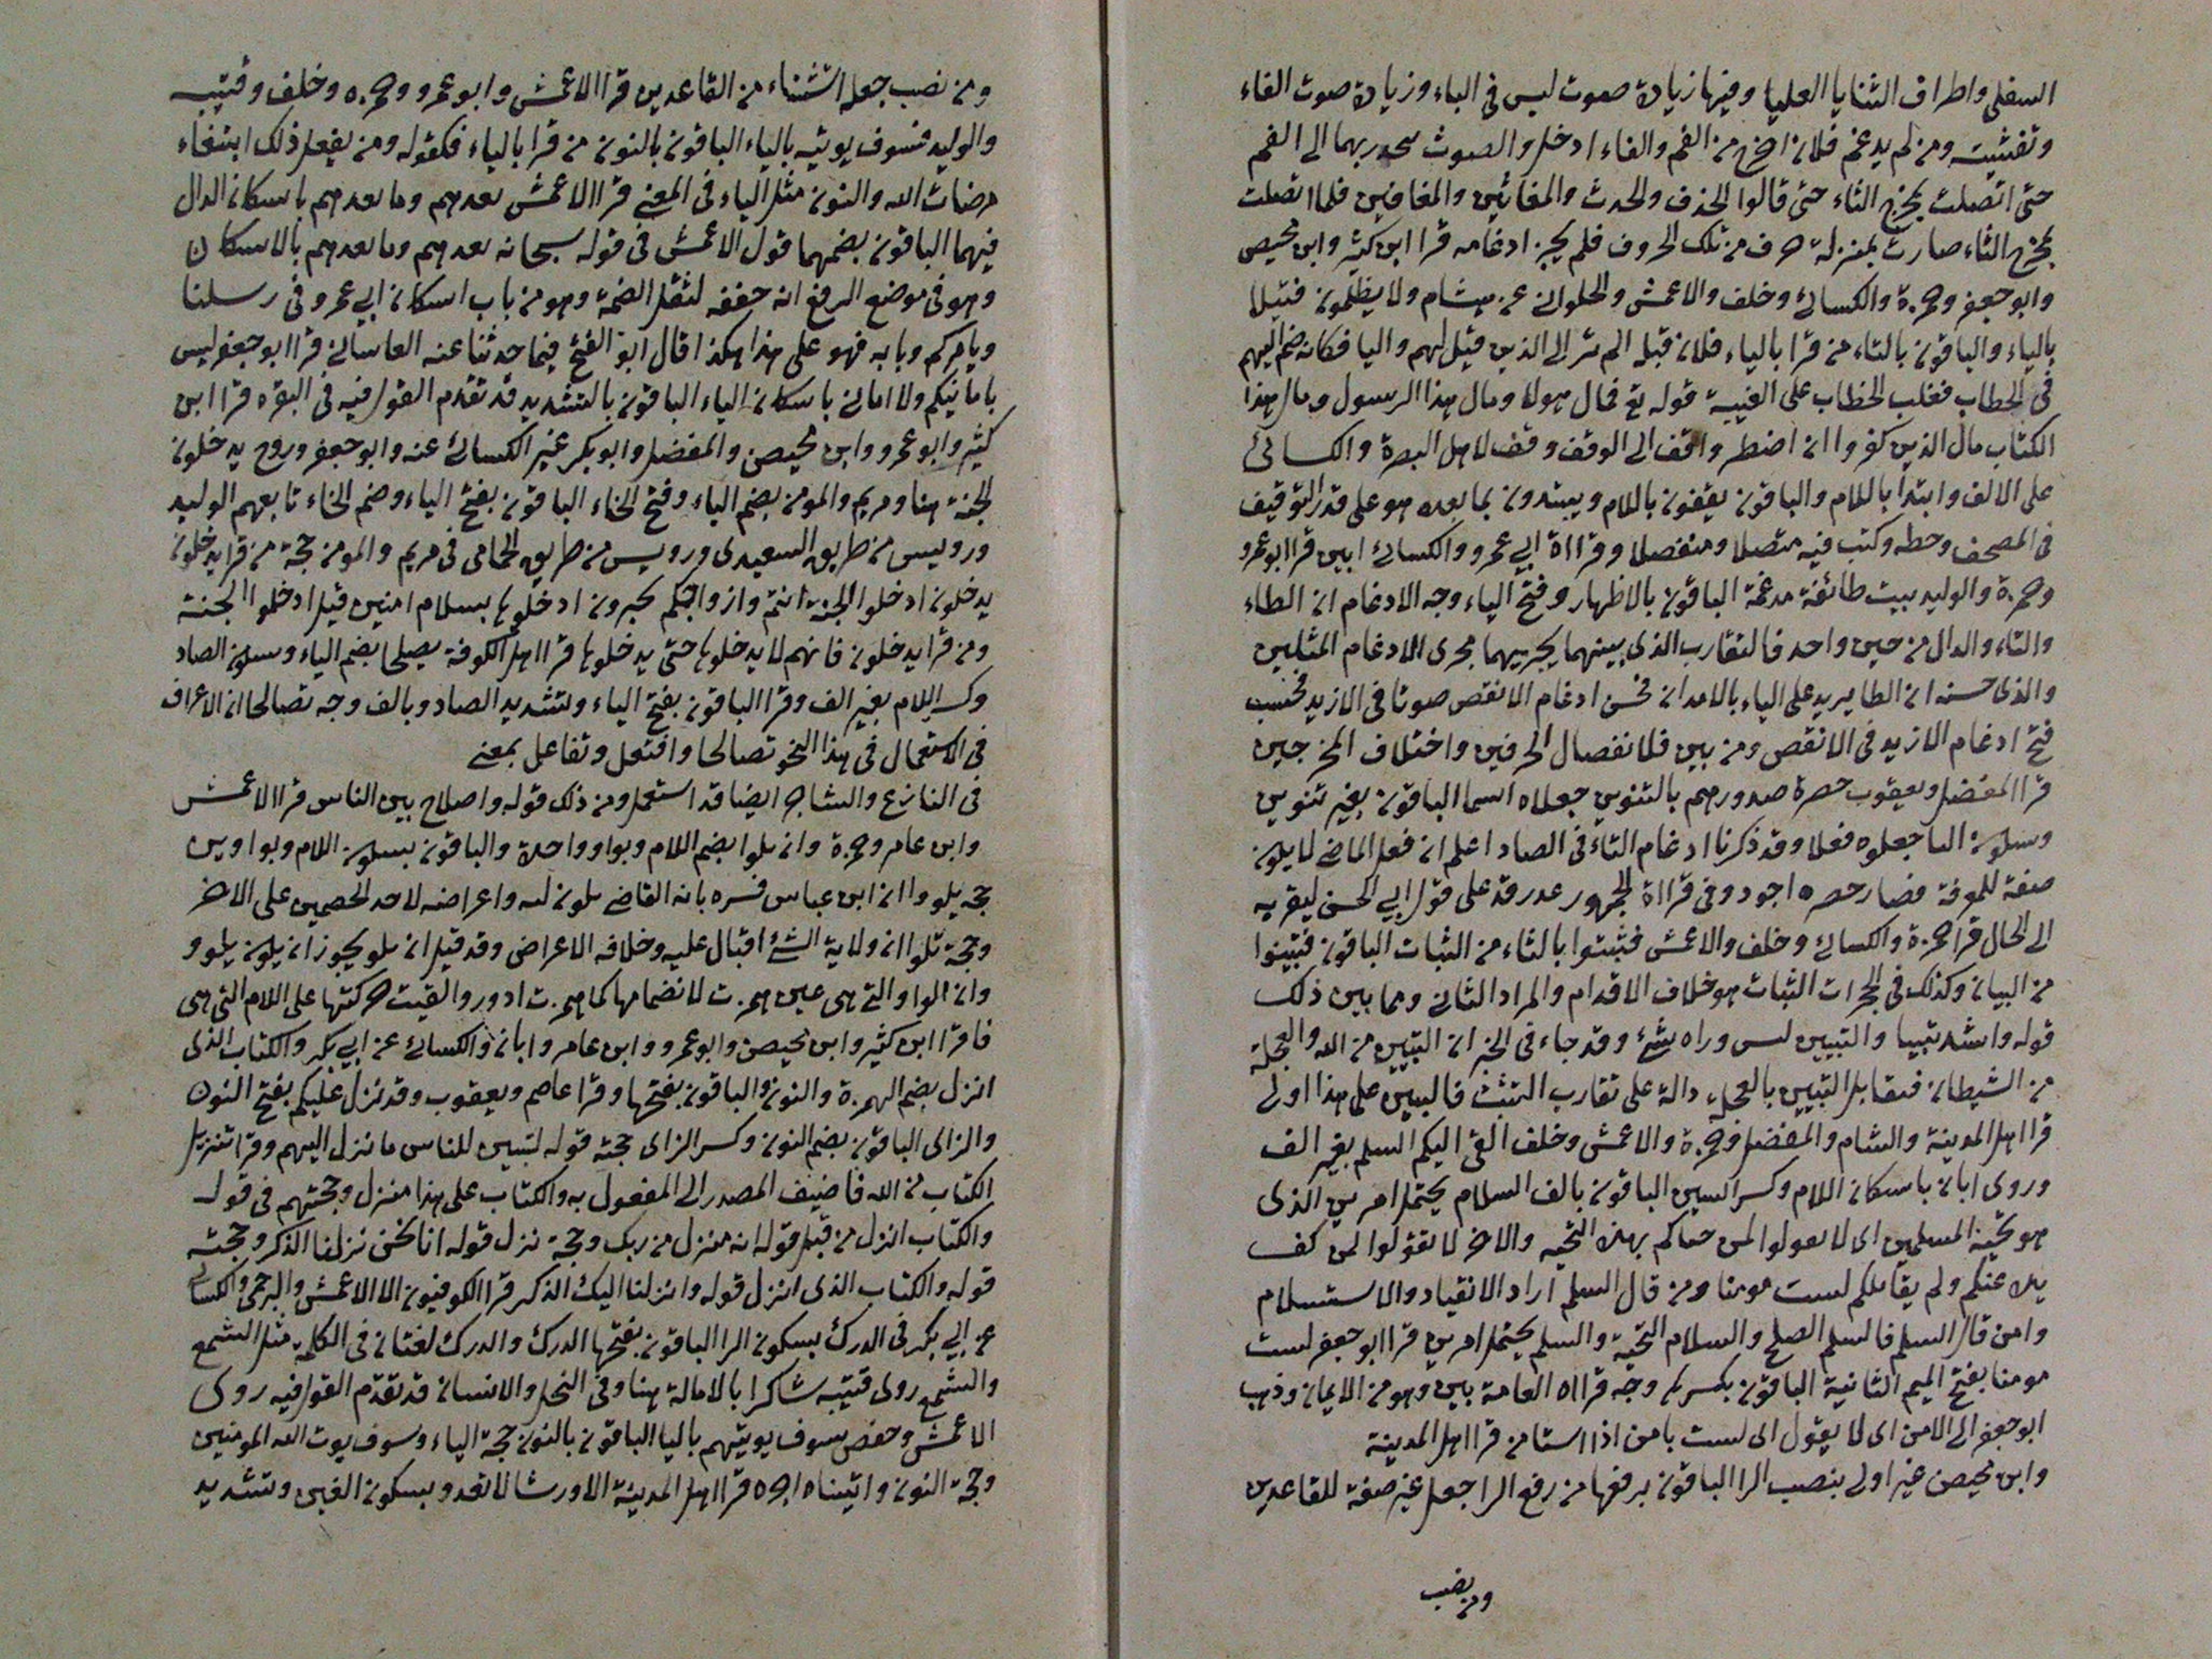 السفلى واطراف الثنايا العليا وفيها زيادة صوت ليس فى الباء وزيادة صوت الفاء
وتفشيت ومن لم يدغم فلان اخرج من الفم والفاء ادخل والصوت ينحدر بهما الى الفم
حتى اتصلت بمخرج الثاء حتى قالوا الجذف والجدث والمغاثير والمغافير فلما اتصلت
بمخرج الثاء صارت بمنزلة حرف من تلك الحروف فلم يجز ادغامه قرا ابن كثير وابن محيصن
وابو جعفر وحمزة والكسائى وخلف والاعمش والحلوانى عن هشام ولا يظلمون فتيلا
بالياء والباقون بالتاء من قرا بالياء فلان قبله الم تر الى الذين قيل لهم واليا فكانه ضم اليهم
فى الخطاب فغلب الخطاب على الغيبة قوله تع فمال هولا ومال هذا الرسول ومال هذا
الكتاب مال الذين كفروا ان اضطر واقف الى الوقف وقف لاهل البصرة والكسائى
على الالف وابتدا باللام والباقون يقفون باللام ويبتدون بما بعده هو على قدر التوقيف
فى المصحف وخطه وكتب فيه متصلا ومنفصلا وقراة ابى عمرو والكسائى ابين قرا ابو عمرو
وحمزة والوليد بيت طائفة مدغمة الباقون بالاظهار وفتح الياء وجه الادغام ان الطاء
والتاء والدال من حيز واحد فالتقارب الذى بينهما يجريهما مجرى الادغام المثلين
والذى حسنه ان الطا يريد على الياء بالامدان فحسن ادغام الانقص صوتا فى الازيد فحسب
فتح ادغام الازيد فى الانقص ومن بين فلانفصال الحرفين واختلاف المخرجين
قرا المفضل ويعقوب حصرة صدورهم بالتنوين جعلاه اسما الباقون بغير تنوين
وسكون التا جعلوه فعلا وقد ذكرنا ادغام التاء فى الصاد اعلم ان فعل الماضى لا يكون
صفة للموفة فصار حصره اجود وفى قراة الجمهور قد على قول ابى الحسن ليقربه
الى الحال قرا حمزة والكسائى وخلف والاعمش فتثبتوا بالثاء من الثبات الباقون فتبينوا
من البيان وكذلك فى الحجرات الثبات هو خلاف الاقدام والمراد الثانى ومما بين ذلك
قوله واشد تثبيتا والتبيين ليس وراه شئ وقد جاء فى الخبر ان التبيين من الله والعجلة
من الشيطان فمقابل التبيين بالعجلة دالة على تقارب التثبت فالتبين على هذا اولى
قرا اهل المدينة والشام والمفضل وحمزة والاعمش وخلف القى اليكم السلم بغير الف
وروى ابان باسكان اللام وكسر السين الباقون بالف السلام يحتمل امرين الذى
هو تحية المسلمين اى لا تقولوا لمن حياكم بهذه التحية والاخر لا تقولوا لمن كف
يده عنكم ولم يقاتلكم لست مومنا ومن قال السلم اراد الانقياد والاستسلام
وامن قال السلم فالسلم الصلح والسلام التحية والسلم يحتمل امرين قرا ابو جعفر لست
مومنا بفتح الميم الثانية الباقون بكسرها وجه قراه العامة بين وهو من الايمان وذهب
ابو جعفر الى الامن اى لا يقول الى لست بامن اذا استامن قرا اهل المدينة
وابن محيصن غير اولى بنصب الرا الباقون برفعها من رفع الرا جعل غير صفة للقاعدين
ومن نصب
ومن نصب جعله استثناء من القاعدين قرا الاعمش وابو عمرو وحمزه وخلف وقتيبه
والوليد فسوف يوتيه بالياء الباقون بالنون من قرا بالياء فكقوله ومن يفعل ذلك ابتغاء
مرضات الله والنون مثل الياء فى المعنى قرا الاعمش يعدهم وما يعدهم باسكان الدال
فيهما الباقون بضمهما قول الاعمش فى قوله سبحانه يعدهم وما يعدهم بالاسكان
وهو فى موضع الرفع انه خففه لثقل الضمة وهو من باب اسكان ابى عمرو فى رسلنا
ويامركم وبابه فهو على هذا هكذا قال ابو الفتح فيما حدثنا عنه قرا ابو جعفر ليس
بامانيكم ولا امانى باسكان الياء الباقون بالتشديد قد تقدم القول فيه فى البقره قرا ابن
كثير وابو عمرو وابن محيصن والمفضل وابو بكر غير الكسائى عنه وابو جعفر وروح يدخلون
الجنة هنا ومريم والمومن بضم الياء وفتح الخاء الباقون بفتح الياء وضم الخاء تابعهم الوليد
ورويس من طريق السعيدى ورويس من طريق الحمامى فى مريم والمومن حجة من قرا يدخلون
يدخلون ادخلوا الجنة انتم وازواجكم تحبرون ادخلوها بسلام امنين قيل ادخلوا الجنة
ومن قرا يدخلون فانهم لا يدخلونها حتى يدخلوها قرا اهل الكوفة يصلحا بضم الياء وسكون الصاد
وكسر اللام بغير الف وقرا الباقون بفتح الياء وتشديد الصاد وبالف وجه تصالحا ان الاعراف
فى الاستعمال فى هذا النحو تصالحا وافتعل وتفاعل بمعنى
فى التنازع والتشاجر ايضا قد استعمل ومن ذلك قوله واصلاح بين الناس قرا الاعمش
وابن عامر وحمزة وان تلوا بضم اللام وبواو واحدة والباقون بسكون اللام وبواوين
حجة يلووا ان ابن عباس فسره بانه القاضى يكون ليه واعراضه لاحد الخصمين على الاخر
وحجة تلوا ان ولاية الشئ اقبال عليه وخلافه الاعراض وقد قيل ان يلو يجوز ان يكون يلوو
وان الواو التى هى عين همزت لانضمامها كما همزت ادور والقيت حركتها على اللام التى هى
فا قرا ابن كثير وابن محيصن وابو عمرو وابن عامر وابان والكسائى عن ابى بكر والكتاب الذى
انزل بضم الهمزة والنون والباقون بفتحها وقرا عاصم ويعقوب وقد نزل عليكم بفتح النون
والزاى الباقون بضم النون وكسر الزاى حجة قوله لتبين للناس ما نزل اليهم وقرا تنزيل
الكتاب من الله فاضيف المصدر الى المفعول به والكتاب على هذا منزل وحجتهم فى قوله
والكتاب انزل من قبل قوله انه منزل من ربك وحجة نزل قوله انا نحن نزلنا الذكر وحجته
قوله والكتاب الذى انزل قوله وانزلنا اليك الذكر قرا الكوفيون الا الاعمش والبرجمى والكسائى
عن ابى بكر فى الدرك بسكون الرا الباقون بفتحها الدرك والدرك لغتان فى الكلمة مثل الشمع
والشمع روى قتيبه شاكرا بالامالة هنا وفى النحل والانسان قد تقدم القول فيه روى
الاعمش وحفص سوف يوتيهم باليا الباقون بالنون حجة الياء وسوف يوت الله المومنين
وحجة النون واتيناه اجره قرا اهل المدينة الا ورشا لا تعدو بسكون العين وتشديد